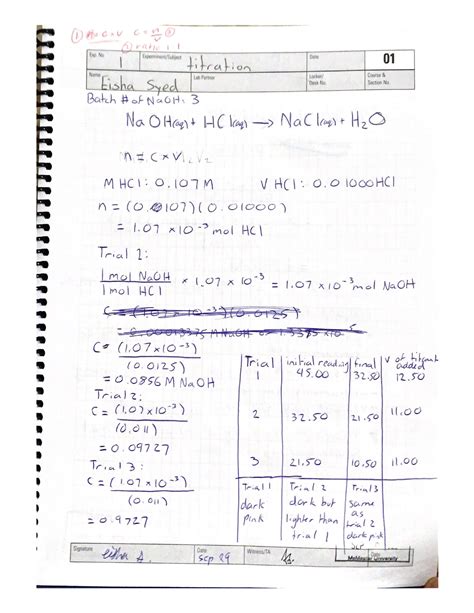 ① n=CxV C=n/V ②
③ ratio 1:1
Exp. No. 1 Experiment/Subject titration Date 01
Name Eisha Syed Lab Partner Locker/Desk No. Course & Section No.
Batch # of NaOH: 3
NaOH(aq) + HCl(aq) → NaCl(aq) + H2O
n = C x V
M HCl: 0.107 M V HCl: 0.01000 HCl
n = (0.107)(0.01000)
= 1.07 x 10^-3 mol HCl
Trial 1:
1 mol NaOH / 1 mol HCl x 1.07 x 10^-3 = 1.07 x 10^-3 mol NaOH
C = (1.07 x 10^-3) / (0.0125)
= 0.0856 M NaOH
Trial 2:
C = (1.07 x 10^-3) / (0.011)
= 0.09727
Trial 3:
C = (1.07 x 10^-3) / (0.011)
= 0.9727
Trial initial reading final V of titrant added
1 45.00 32.50 12.50
2 32.50 21.50 11.00
3 21.50 10.50 11.00
Trial 1 Trial 2 Trial 3
dark dark but same
pink lighter than as
trial 1 trial 2
dark pink
Signature Eisha S. Date Sep 29 Witness/TA Date
McMaster University